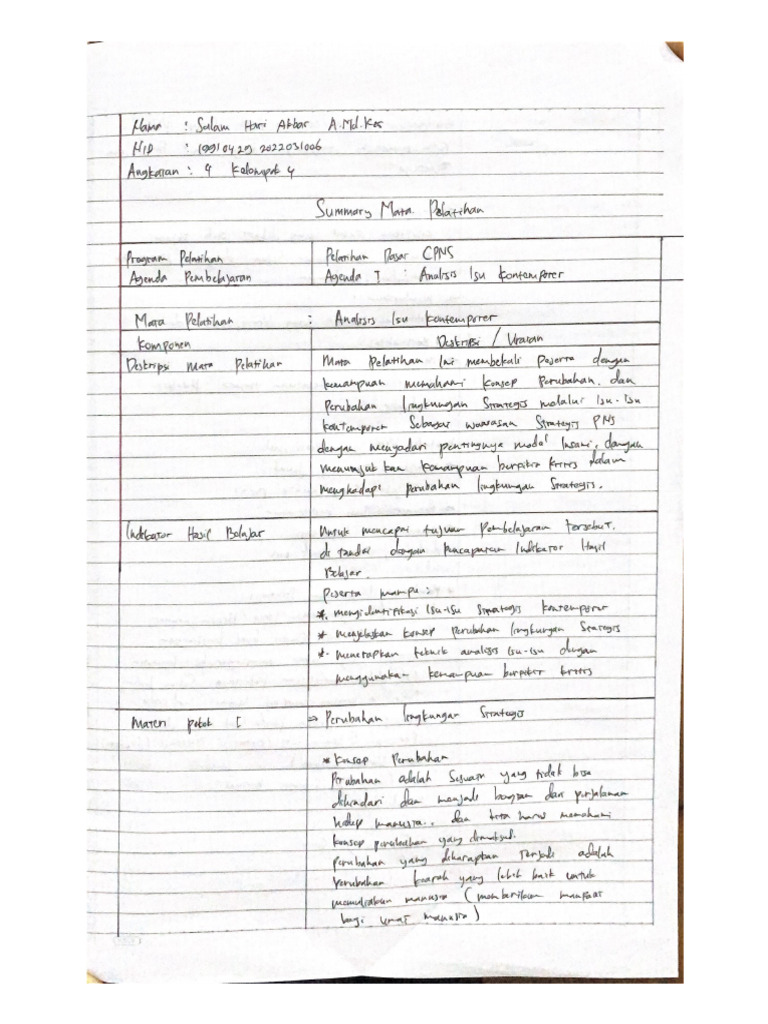 Nama : Salam Hari Akbar A.Md.Kes
NIP : 19910429 2022031006
Angkatan : 4 Kelompok 4
Summary Mata Pelatihan
Program Pelatihan Pelatihan Dasar CPNS
Agenda Pembelajaran Agenda I : Analisis Isu Kontemporer
Mata Pelatihan : Analisis Isu Kontemporer
Komponen Deskripsi / Uraian
Deskripsi Mata Pelatihan Mata Pelatihan Ini membekali Peserta dengan
kemampuan memahami Konsep Perubahan, dan
Perubahan lingkungan Strategis melalui Isu-Isu
kontemporer Sebagai wawasan Strategis PNS
dengan menyadari pentingnya modal Insani, dengan
menunjukkan Kemampuan berpikir kritis dalam
menghadapi perubahan lingkungan Strategis.
Indikator Hasil Belajar Untuk mencapai tujuan Pembelajaran tersebut,
di tandai dengan pencapaian Indikator Hasil
Belajar.
Peserta mampu :
* mengidentifikasi Isu-Isu Strategis kontemporer
* menjelaskan konsep Perubahan lingkungan Strategis
* menerapkan teknik analisis Isu-Isu dengan
menggunakan kemampuan berpikir kritis
Materi pokok I ⇒ Perubahan lingkungan Strategis
* Konsep Perubahan
Perubahan adalah Sesuatu yang tidak bisa
dihindari dan menjadi bagian dari perjalanan
hidup manusia., dan kita harus memahami
konsep perubahan yang dimaksud.
perubahan yang diharapkan terjadi adalah
perubahan kearah yang lebih baik untuk
memuliakan manusia (memberikan manfaat
bagi umat manusia)